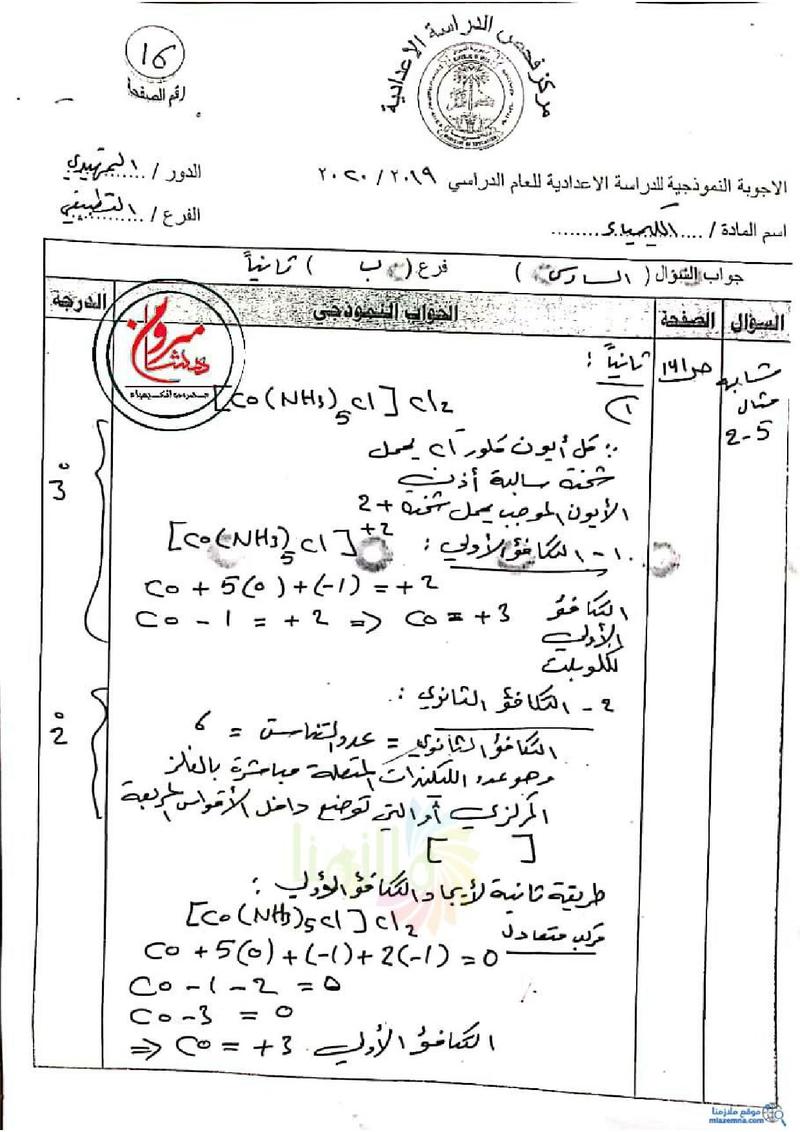 مركز فحص الدراسة الاعدادية
16
رقم الصفحة
الدور / التمهيدي
الفرع / التطبيقي
الاجوبة النموذجية للدراسة الاعدادية للعام الدراسي ٢٠١٩ / ٢٠٢٠
اسم المادة / الكيمياء
جواب السؤال ( السادس ) فرع ( ب ) ثانياً
السؤال الصفحة الجواب النموذجي الدرجة
مشابه مثال 5-2
ص١٦١
ثانياً :
١)
[Co(NH3)5Cl]Cl2
∵ كل أيون كلور Cl يحمل
شحنة سالبة أذن
الأيون الموجب يحمل شحنة +2
1- التكافؤ الأولي : [Co(NH3)5Cl]+2
Co + 5(0) + (-1) = +2
Co - 1 = +2 => Co = +3 التكافؤ الأولي للكوبلت
3°
2- التكافؤ الثانوي :
التكافؤ الثانوي = عدد التناسق = 6
وهو عدد الليكندات المتصلة مباشرة بالفلز
المركزي أو التي توضع داخل الأقواس المربعة
[ ]
2°
طريقة ثانية لأيجاد التكافؤ الأولي :
[Co(NH3)5Cl]Cl2
مركب متعادل
Co + 5(0) + (-1) + 2(-1) = 0
Co - 1 - 2 = 0
Co - 3 = 0
=> Co = +3 التكافؤ الأولي
ملازمنا
موقع ملازمنا
mlazemna.com